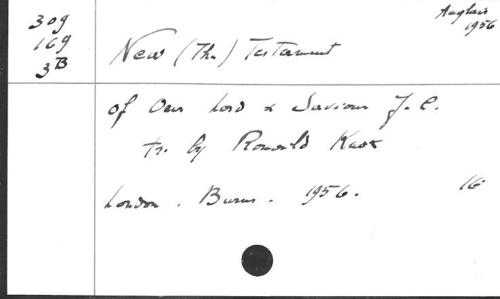 309
169
3B
Anglais
1956
New (The) Testament
of Our Lord & Saviour J. C.
tr. by Ronald Knox
London. Burns. 1956. 16